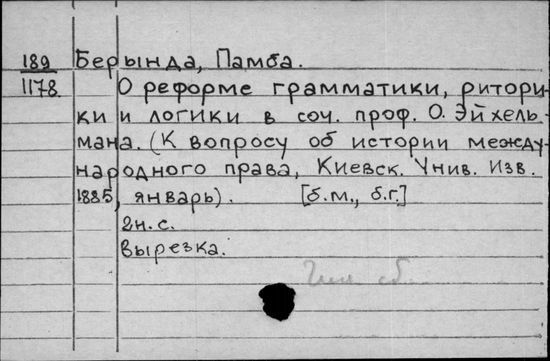 189 Берында, Памба.
1178. О реформе грамматики, ритори-
ки и логики в соч. проф. О. Эйхель-
мана. (К вопросу об истории между-
народного права, Киевск. Унив. Изв.
1885, январь). [б.м., б.г.]
2н.с.
Вырезка.